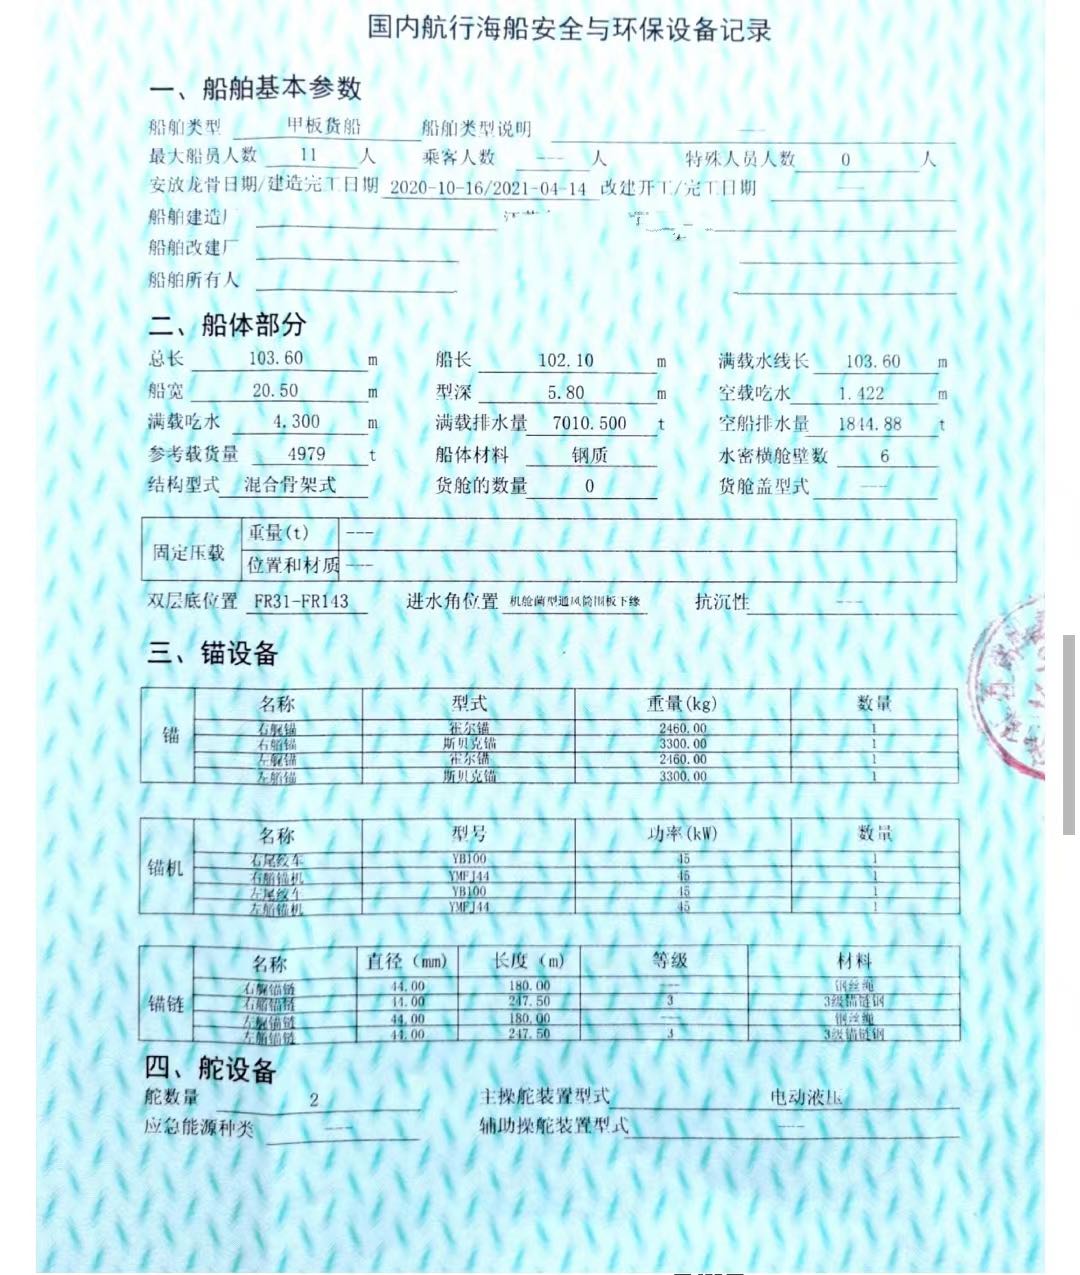 国内航行海船安全与环保设备记录
一、船舶基本参数
船舶类型 甲板货船 船舶类型说明 ---
最大船员人数 11 人 乘客人数 --- 人 特殊人员人数 0 人
安放龙骨日期/建造完工日期 2020-10-16/2021-04-14 改建开工/完工日期 ---
船舶建造厂
船舶改建厂
船舶所有人
二、船体部分
总长 103.60 m 船长 102.10 m 满载水线长 103.60 m
船宽 20.50 m 型深 5.80 m 空载吃水 1.422 m
满载吃水 4.300 m 满载排水量 7010.500 t 空船排水量 1844.88 t
参考载货量 4979 t 船体材料 钢质 水密横舱壁数 6
结构型式 混合骨架式 货舱的数量 0 货舱盖型式 ---
固定压载 重量(t) ---
位置和材质 ---
双层底位置 FR31-FR143 进水角位置 机舱菌型通风筒围板下缘 抗沉性 ---
三、锚设备
锚 名称 型式 重量(kg) 数量
右艉锚 霍尔锚 2460.00 1
右艏锚 斯贝克锚 3300.00 1
左艉锚 霍尔锚 2460.00 1
左艏锚 斯贝克锚 3300.00 1
锚机 名称 型号 功率(kW) 数量
右尾绞车 YB100 45 1
右艏锚机 YMFJ44 45 1
左尾绞车 YB100 45 1
左艏锚机 YMFJ44 45 1
锚链 名称 直径 (mm) 长度 (m) 等级 材料
右艉锚链 44.00 180.00 --- 钢丝绳
右艏锚链 44.00 247.50 3 3级锚链钢
左艉锚链 44.00 180.00 --- 钢丝绳
左艏锚链 44.00 247.50 3 3级锚链钢
四、舵设备
舵数量 2 主操舵装置型式 电动液压
应急能源种类 --- 辅助操舵装置型式 ---